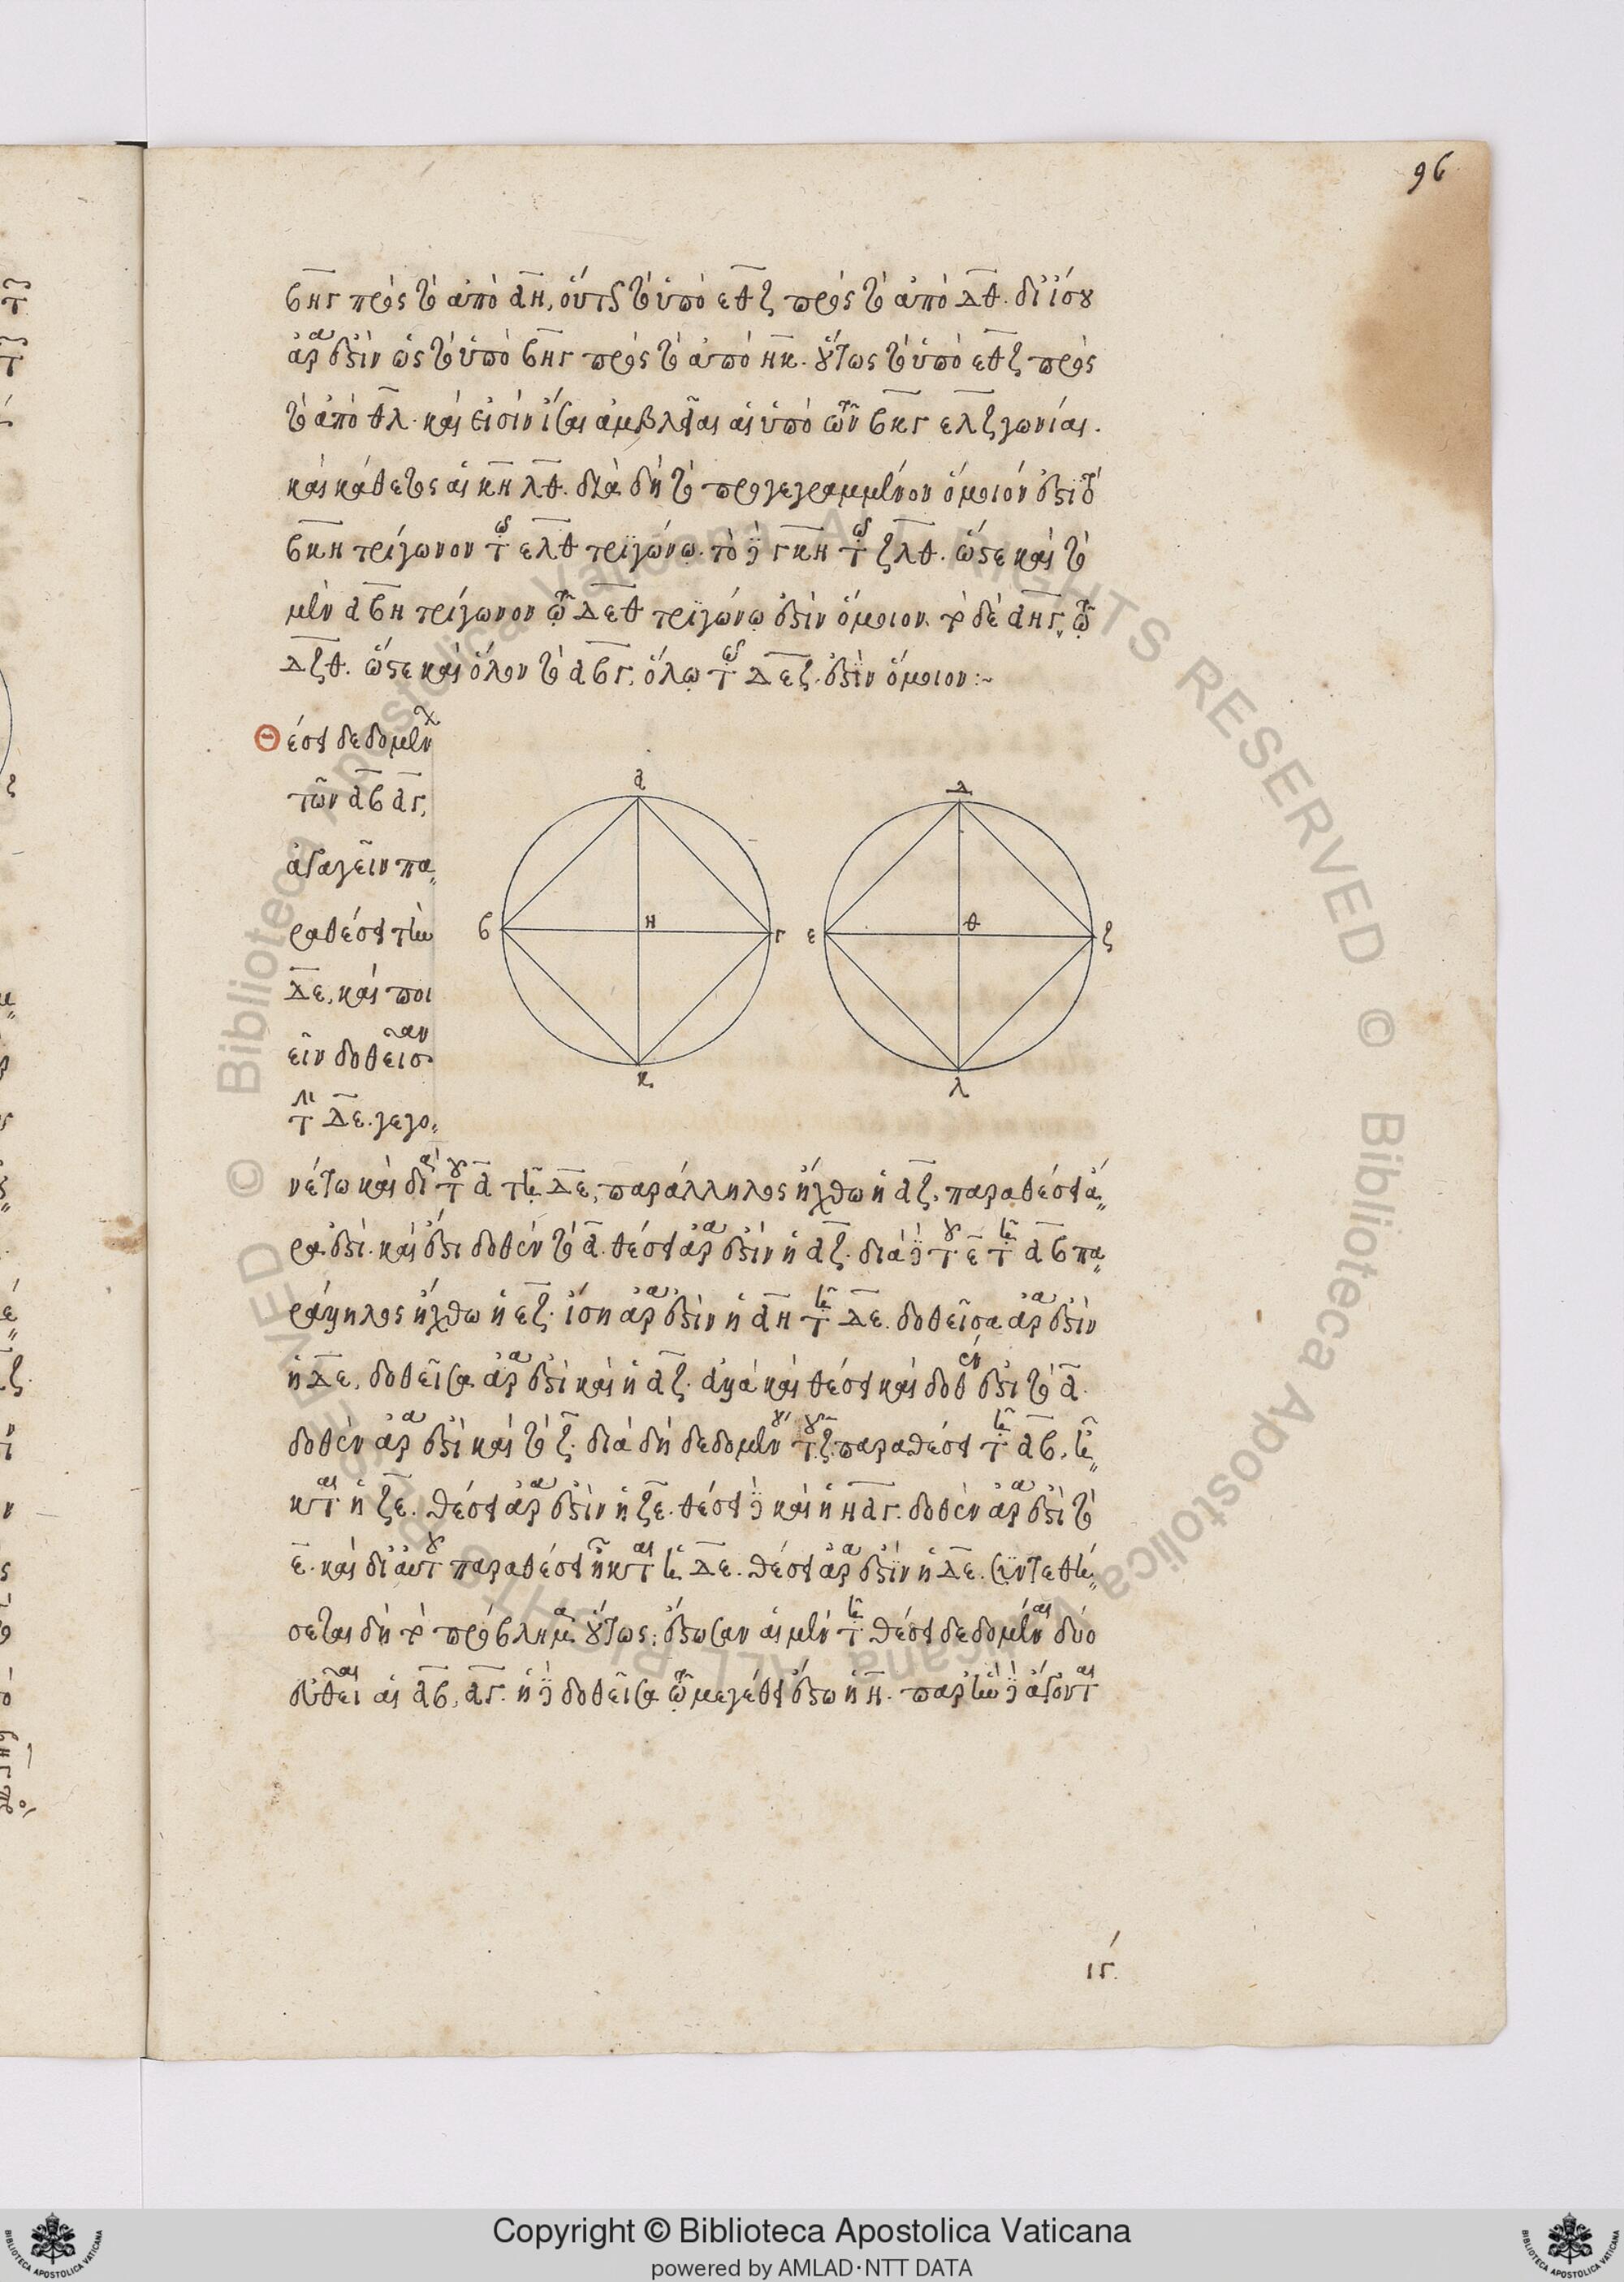 96
ϐηγ πρὸς τὸ ἀπὸ αη, οὕτως τὸ ὑπὸ εθζ πρὸς τὸ ἀπὸ δθ. δι ἴσου
ἄρα ἐστὶν ὡς τὸ ὑπὸ ϐηγ πρὸς τὸ ἀπὸ ηκ. οὕτως τὸ ὑπὸ εθζ πρὸς
τὸ ἀπὸ θλ. καὶ εἰσὶν ἴσαι ἀμβλεῖαι αἱ ὑπὸ τῶν ϐκγ ελζ γωνίαι.
καὶ κάθετος αἱ κη λθ. διὰ δὴ τὸ προγεγραμμένον ὅμοιόν ἐστι τὸ
ϐκη τρίγωνον τῷ ελθ τριγώνῳ. τὸ δὲ γκη τῷ ζλθ. ὥστε καὶ τὸ
μὲν αϐη τρίγωνον τῷ δεθ τριγώνῳ ἐστὶν ὅμοιον. τὸ δὲ αηγ, τῷ
δζθ. ὥστε καὶ ὅλον τὸ αϐγ, ὅλῳ τῷ δεζ. ἐστὶν ὅμοιον:~
Θέσει δεδομένων
τῶν αϐ αγ,
ἀγαγεῖν πα
ρα θέσει τὴν
δε, καὶ ποι
εῖν δοθεῖσαν
τὴν δε. γεγο
α
ϐ
η
γ
κ
δ
ε
θ
ζ
λ
νέτω καὶ διὰ τοῦ α τῇ δε, παράλληλος ἤχθω ἡ αζ, παρα θέσει ἄ
ρα ἐστί. καὶ ἔστι δοθὲν τὸ α. θέσει ἄρα ἐστὶν ἡ αζ. διὰ δὲ τοῦ ε τῇ αϐ πα
ράλληλος ἤχθω ἡ εζ. ἴση ἄρα ἐστὶν ἡ αη τῇ δε. δοθεῖσα ἄρα ἐστὶν
ἡ δε, δοθεῖσα ἄρα ἐστὶ καὶ ἡ αζ. ἀλλὰ καὶ θέσει καὶ δοθέν ἐστι τὸ α.
δοθὲν ἄρα ἐστὶ καὶ τὸ ζ. διὰ δὴ δεδομένου τοῦ ζ παρα θέσει τῇ αϐ, ἦ
κται ἡ ζε. θέσει ἄρα ἐστὶν ἡ ζε. θέσει δὲ καὶ ἡ ηαγ. δοθὲν ἄρα ἐστὶ τὸ
ε. καὶ δι αὐτοῦ παρα θέσει ἦκται ἡ δε. θέσει ἄρα ἐστὶν ἡ δε. συντεθή
σεται δὴ τὸ πρόϐλημα οὕτως: ἔστωσαν αἱ μὲν τῇ θέσει δεδομέναι δύο
εὐθεῖαι αἱ αϐ, αγ. ἡ δὲ δοθεῖσα τῷ μεγέθει ἔστω ἡ η. παρ ἣν δὲ ἄγονται
ιγ
Copyright © Biblioteca Apostolica Vaticana
powered by AMLAD·NTT DATA